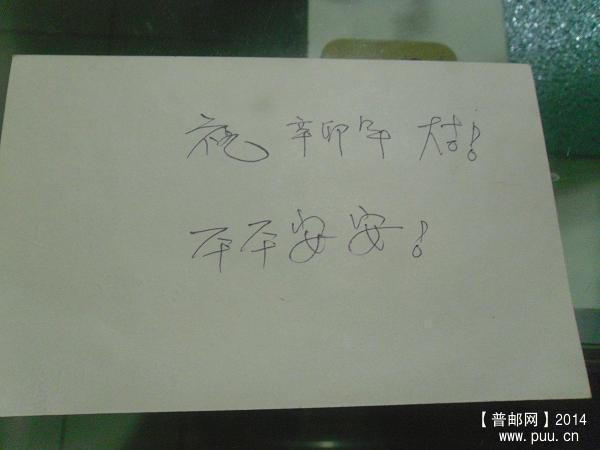 祝 辛卯年 大吉!
平平安安!
【普邮网】2014
www.puu.cn